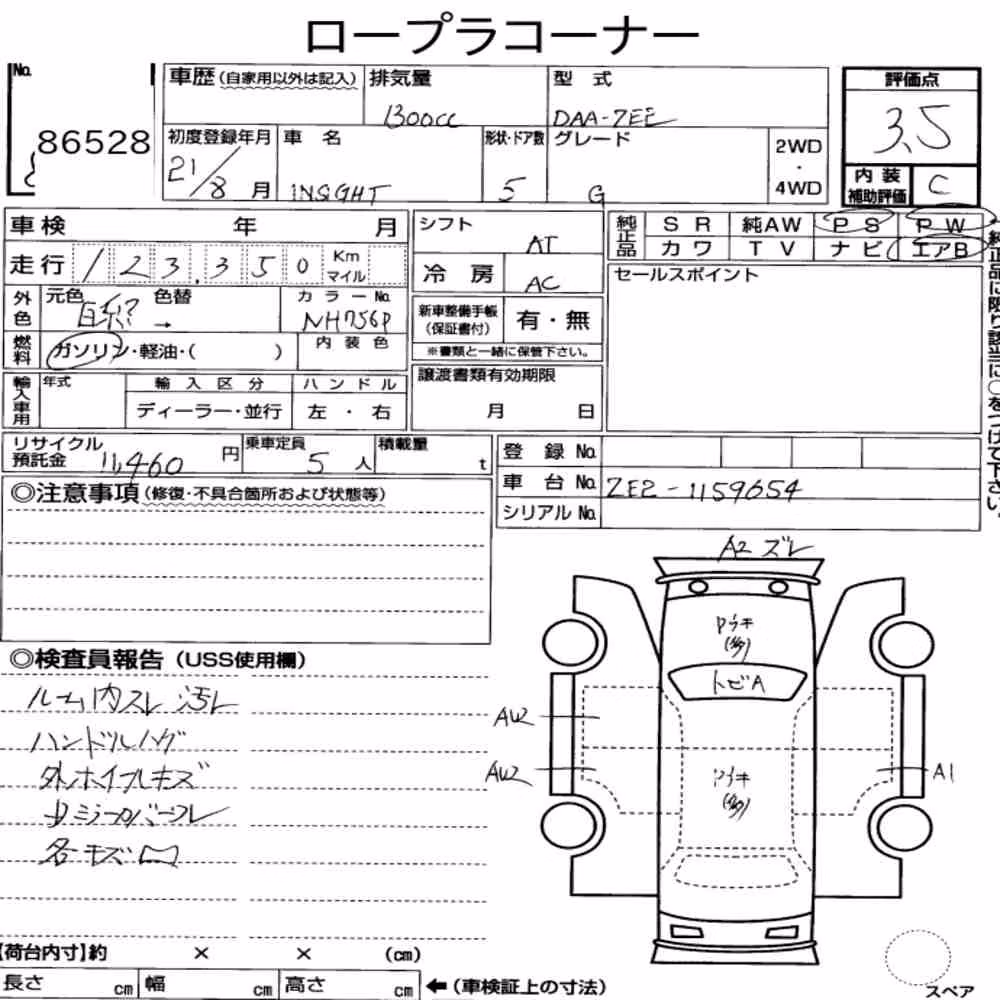 ロープラコーナー
No.
86528
車歴(自家用以外は記入)
排気量
1300cc
型 式
DAA-ZE2
評価点
3.5
初度登録年月
21/8 月
車 名
INSGHT
形状・ドア数
5
グレード
G
2WD
・
4WD
内 装
補助評価
C
車検 年 月
走行 123,350 Km
マイル
シフト
AT
冷 房
AC
純正品
S R 純AW P S P W
カワ T V ナビ エアB
純正品に限り該当に○をつけて下さい。
セールスポイント
外色
元色
色替
→
カラーNo.
NH756P
燃料
ガソリン・軽油・( )
内 装 色
新車整備手帳
(保証書付)
有・無
※書類と一緒に保管下さい。
輸入車用
年式
輸 入 区 分
ディーラー・並行
ハ ン ド ル
左 ・ 右
譲渡書類有効期限
月 日
リサイクル
預託金 11,460 円
乗車定員
5 人
積載量
t
登 録 No.
車 台 No. ZE2-1159654
シリアル No.
◎注意事項(修復・不具合箇所および状態等)
◎検査員報告(USS使用欄)
ルーム内スレ 汚レ
ハンドルハゲ
外ホイルキズ
各キズ凹
A2 ズレ
Pキ
(多)
トビA
AW2
AW2
Pキ
(多)
A1
【荷台内寸】約 × × (cm)
長さ cm 幅 cm 高さ cm
←(車検証上の寸法)
スペア